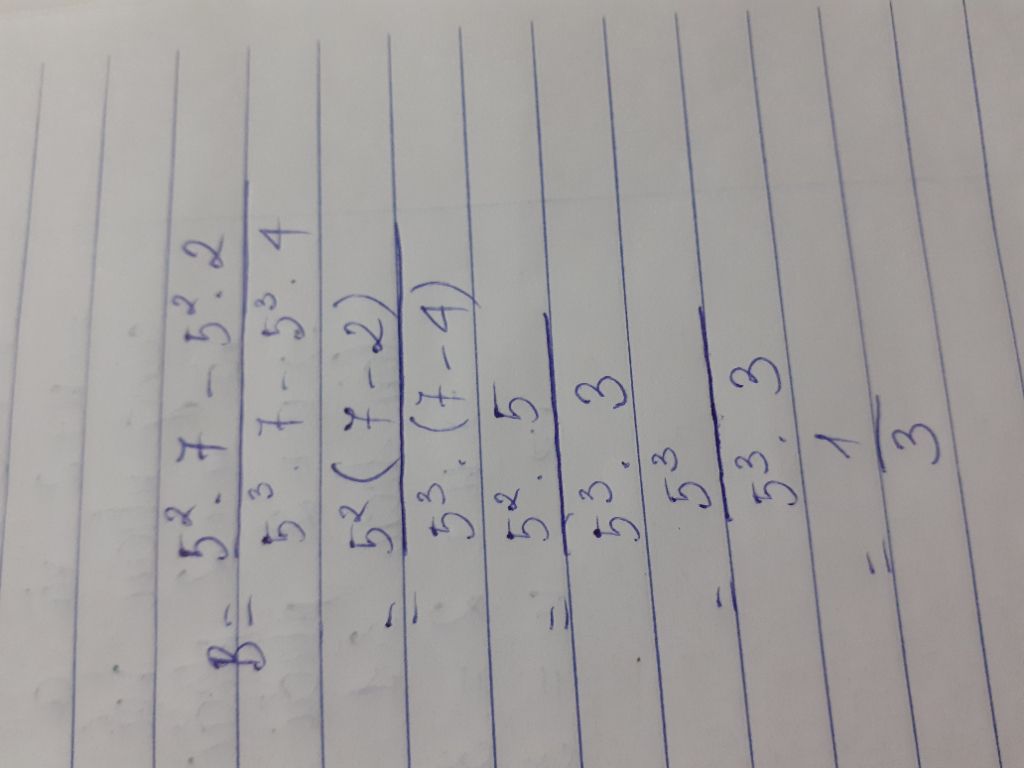 B = \frac{5^2 . 7 - 5^2 . 2}{5^3 . 7 - 5^3 . 4}
= \frac{5^2 ( 7 - 2)}{5^3 . (7 - 4)}
= \frac{5^2 . 5}{5^3 . 3}
= \frac{5^3}{5^3 . 3}
= \frac{1}{3}